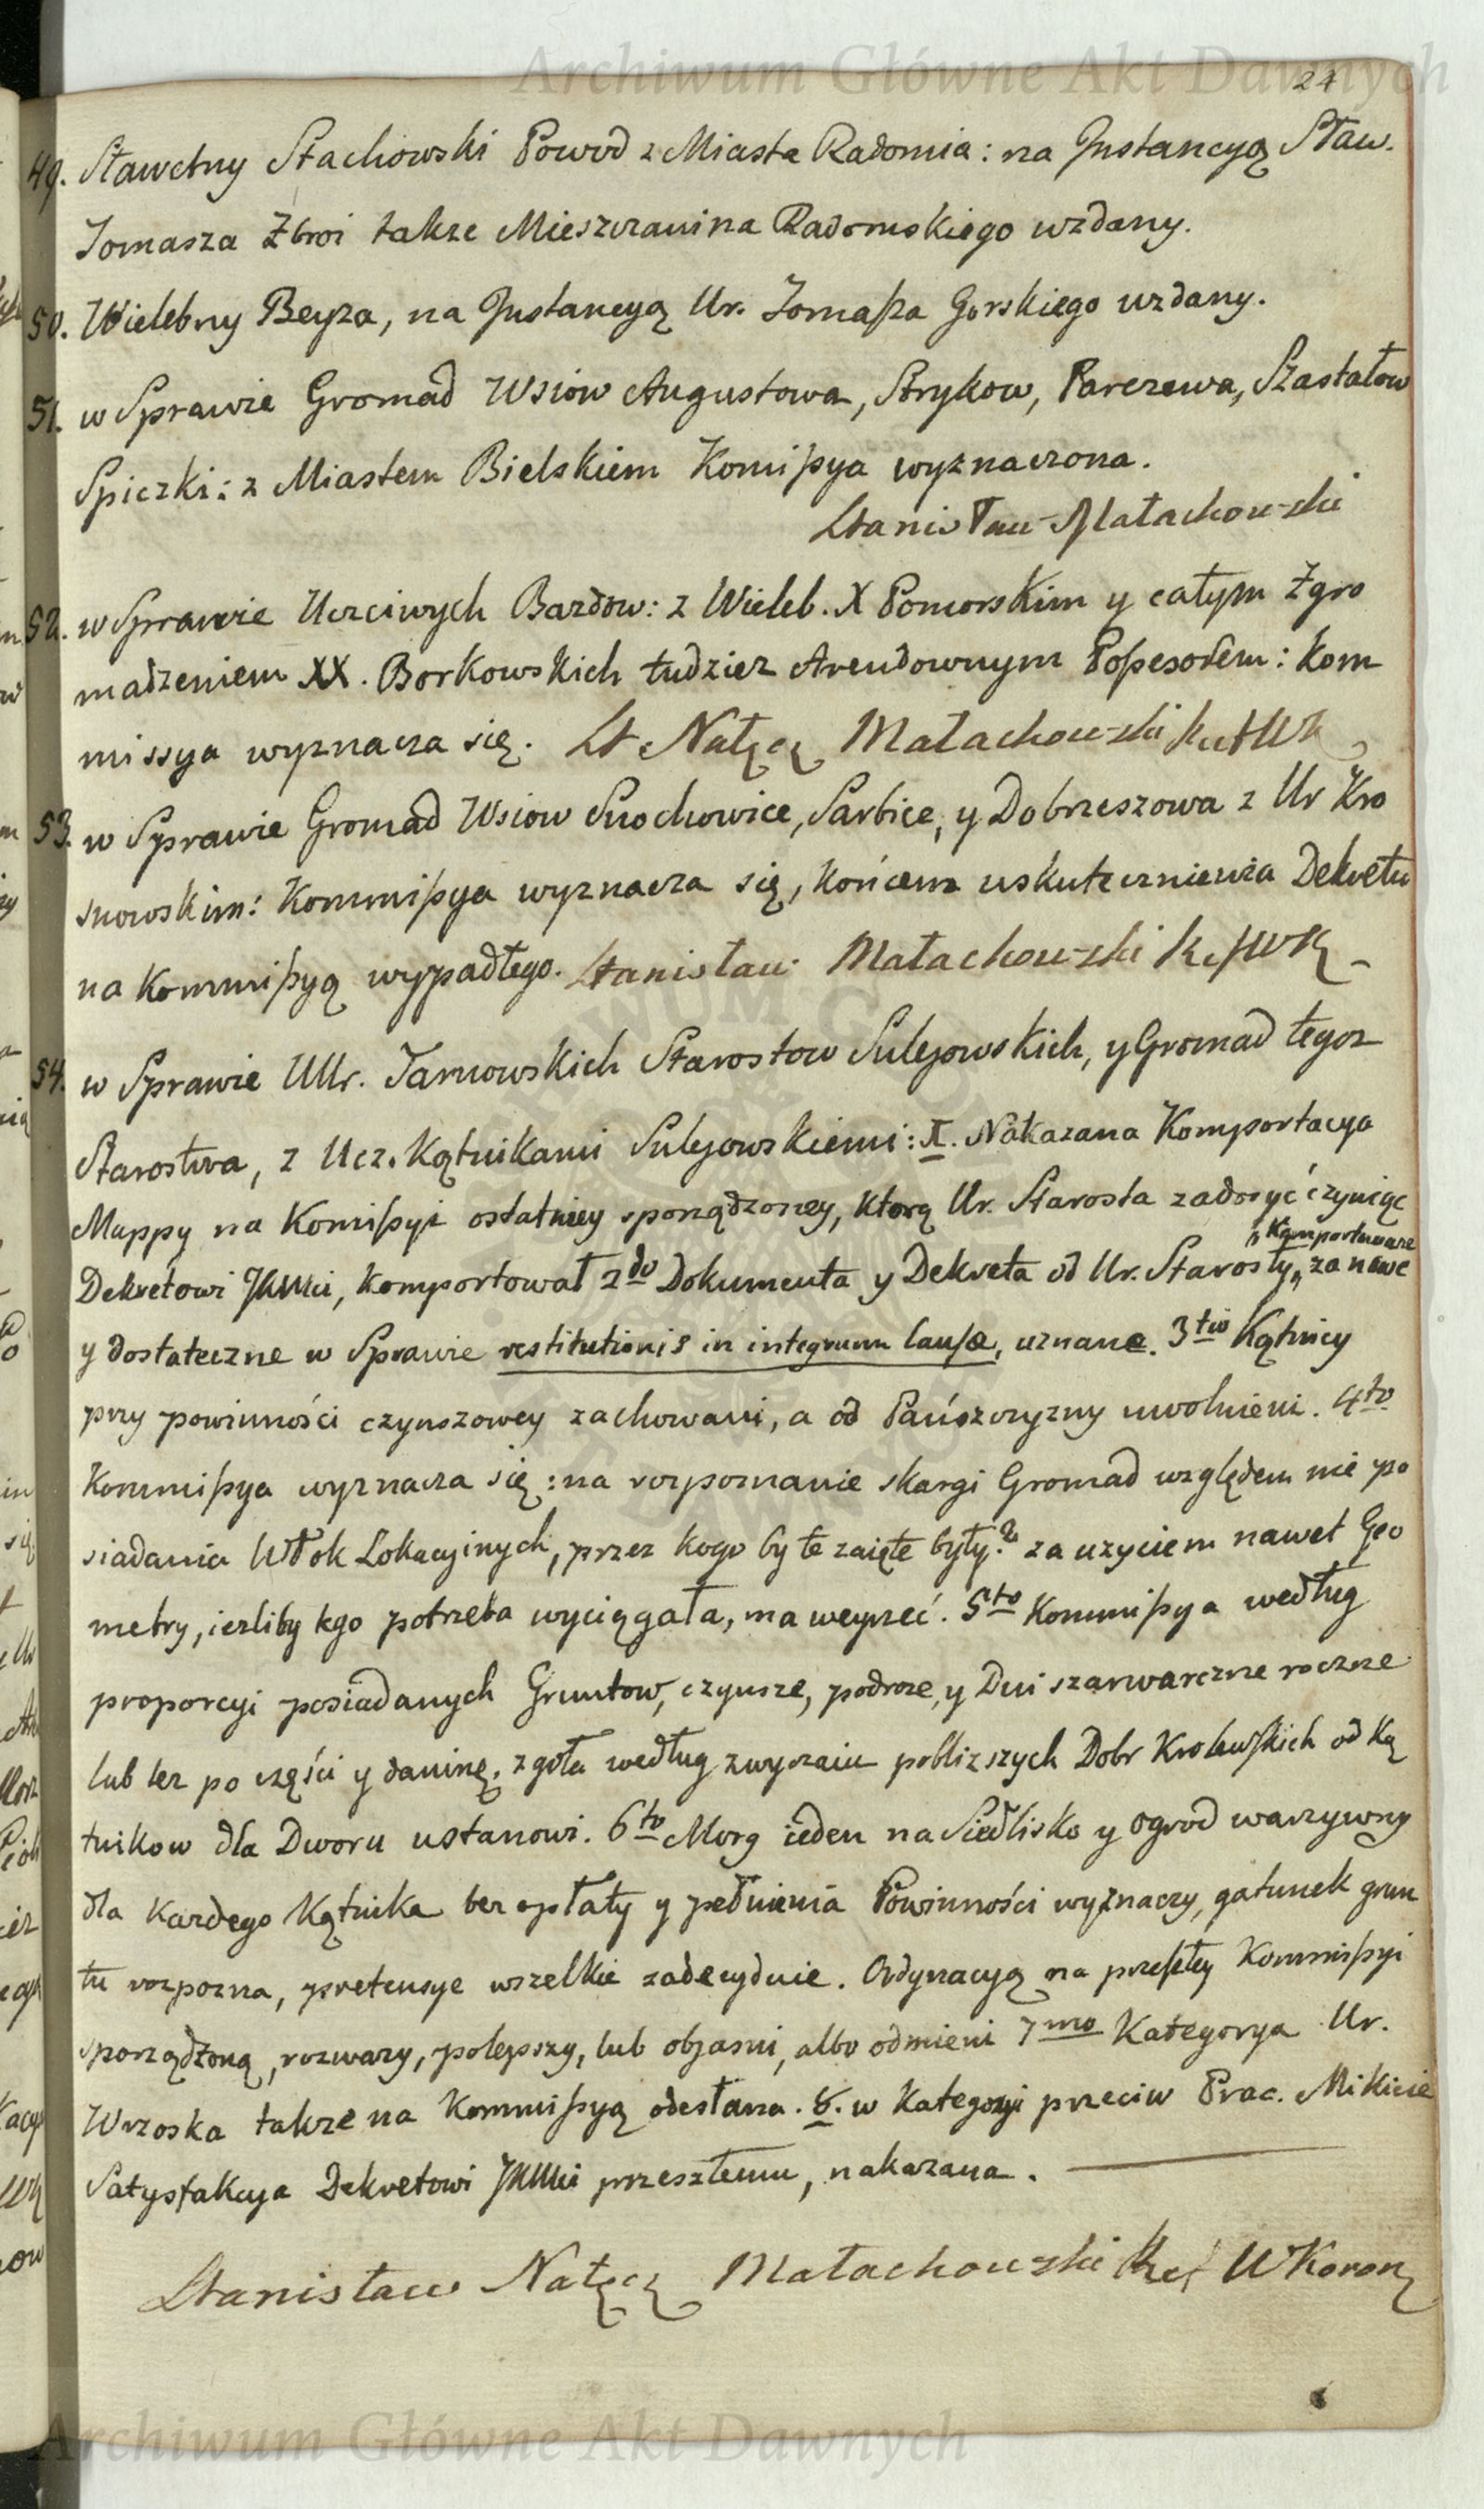 Archiwum Główne Akt Dawnych
24
49. Sławetny Stachowski Powod z Miasta Radomia: na Instancyą Sław.
Tomasza Zbroi takze Mieszczanina Radomskiego wzdany.
50. Wielebny Beyza, na Instancyą Ur. Tomaſza Gorskiego wzdany.
51. w Sprawie Gromad Wsiow Augustowa, Strykow, Parczewa, Szastałow
Spiczki: z Miastem Bielskiem Komiſsya wyznaczona.
Stanisław Małachowski
52. w Sprawie Uczciwych Bazdow: z Wieleb. X Pomorskim y całym Zgro
madzeniem XX. Borkowskich tudziez Arendownym Poſsesorem: Kom
missya wyznacza się. St Nałęcz Małachowski RefWK
53. w Sprawie Gromad Wsiow Snochowice, Sarbice, y Dobrzeszowa z Ur Kro
snowskim: Kommiſsya wyznacza się, końcem uskutecznienia Dekretu
na Kommiſsyą wypadłego. Stanisław Małachowski RefWK
54. w Sprawie UUr. Tarnowskich Starostow Sulejowskich, y Gromad tegoz
Starostwa, z Ucz. Kątnikami Sulejowskiemi: I. Nakazana Komportacya
Mappy na Komiſsyi ostatniey sporządzoney, ktorą Ur. Starosta zadosyć czyniąc
Dekretowi JKMci, komportował 2do Dokumenta y Dekreta od Ur. Starosty „Komportowane „ za nowe
y dostateczne w Sprawie restitutionis in integrum Cauſæ, uznane. 3tio Kątnicy
przy powinności czynszowey zachowani, a od Pańszczyzny uwolnieni. 4to
Kommiſsya wyznacza się: na rozpoznanie skargi Gromad względem nie po
siadania Włok Lokacyinych, przez kogo by te zaięte były? za uzyciem nawet Geo
metry, iezliby tego potrzeba wyciągała, ma weyrzeć. 5to Kommiſsya według
proporcyi posiadanych Gruntow, czynsze, podroze, y Dni szarwarczne roczne
lub tez po części y daninę, zgoła według zwyczaiu poblizszych Dobr Krolewſkich od Ką
tnikow dla Dworu ustanowi. 6to Morg ieden na Siedlisko y ogrod warzywny
dla Kazdego Kątnika bez opłaty y pełnienia Powinności wyznaczy, gatunek grun
tu rozpozna, pretensye wszelkie zadecyduie. Ordynacyą na przeſzłey Kommiſsyi
sporządzoną, rozwazy, polepszy, lub objasni, albo odmieni 7mo Kategorya Ur.
Wrzoska takze na Kommiſsyą odesłana. 8. w Kategoryi przeciw Prac. Mikicie
Satysfakcya Dekretowi JKMci przeszłemu, nakazana.
Stanisław Nałęcz Małachowski Ref WKoronny
Archiwum Główne Akt Dawnych